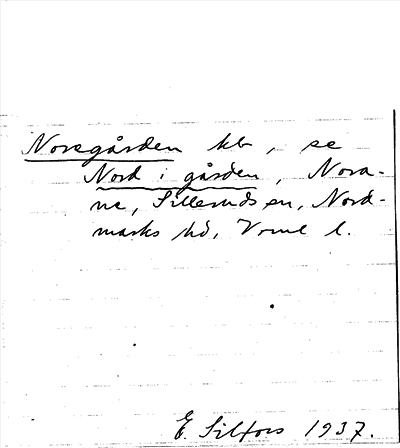 Noregården hb, se
Nord i gården, Nora-
ne, Silleruds sn, Nord-
marks hd, Vrml l.
E. Silfors 1937.